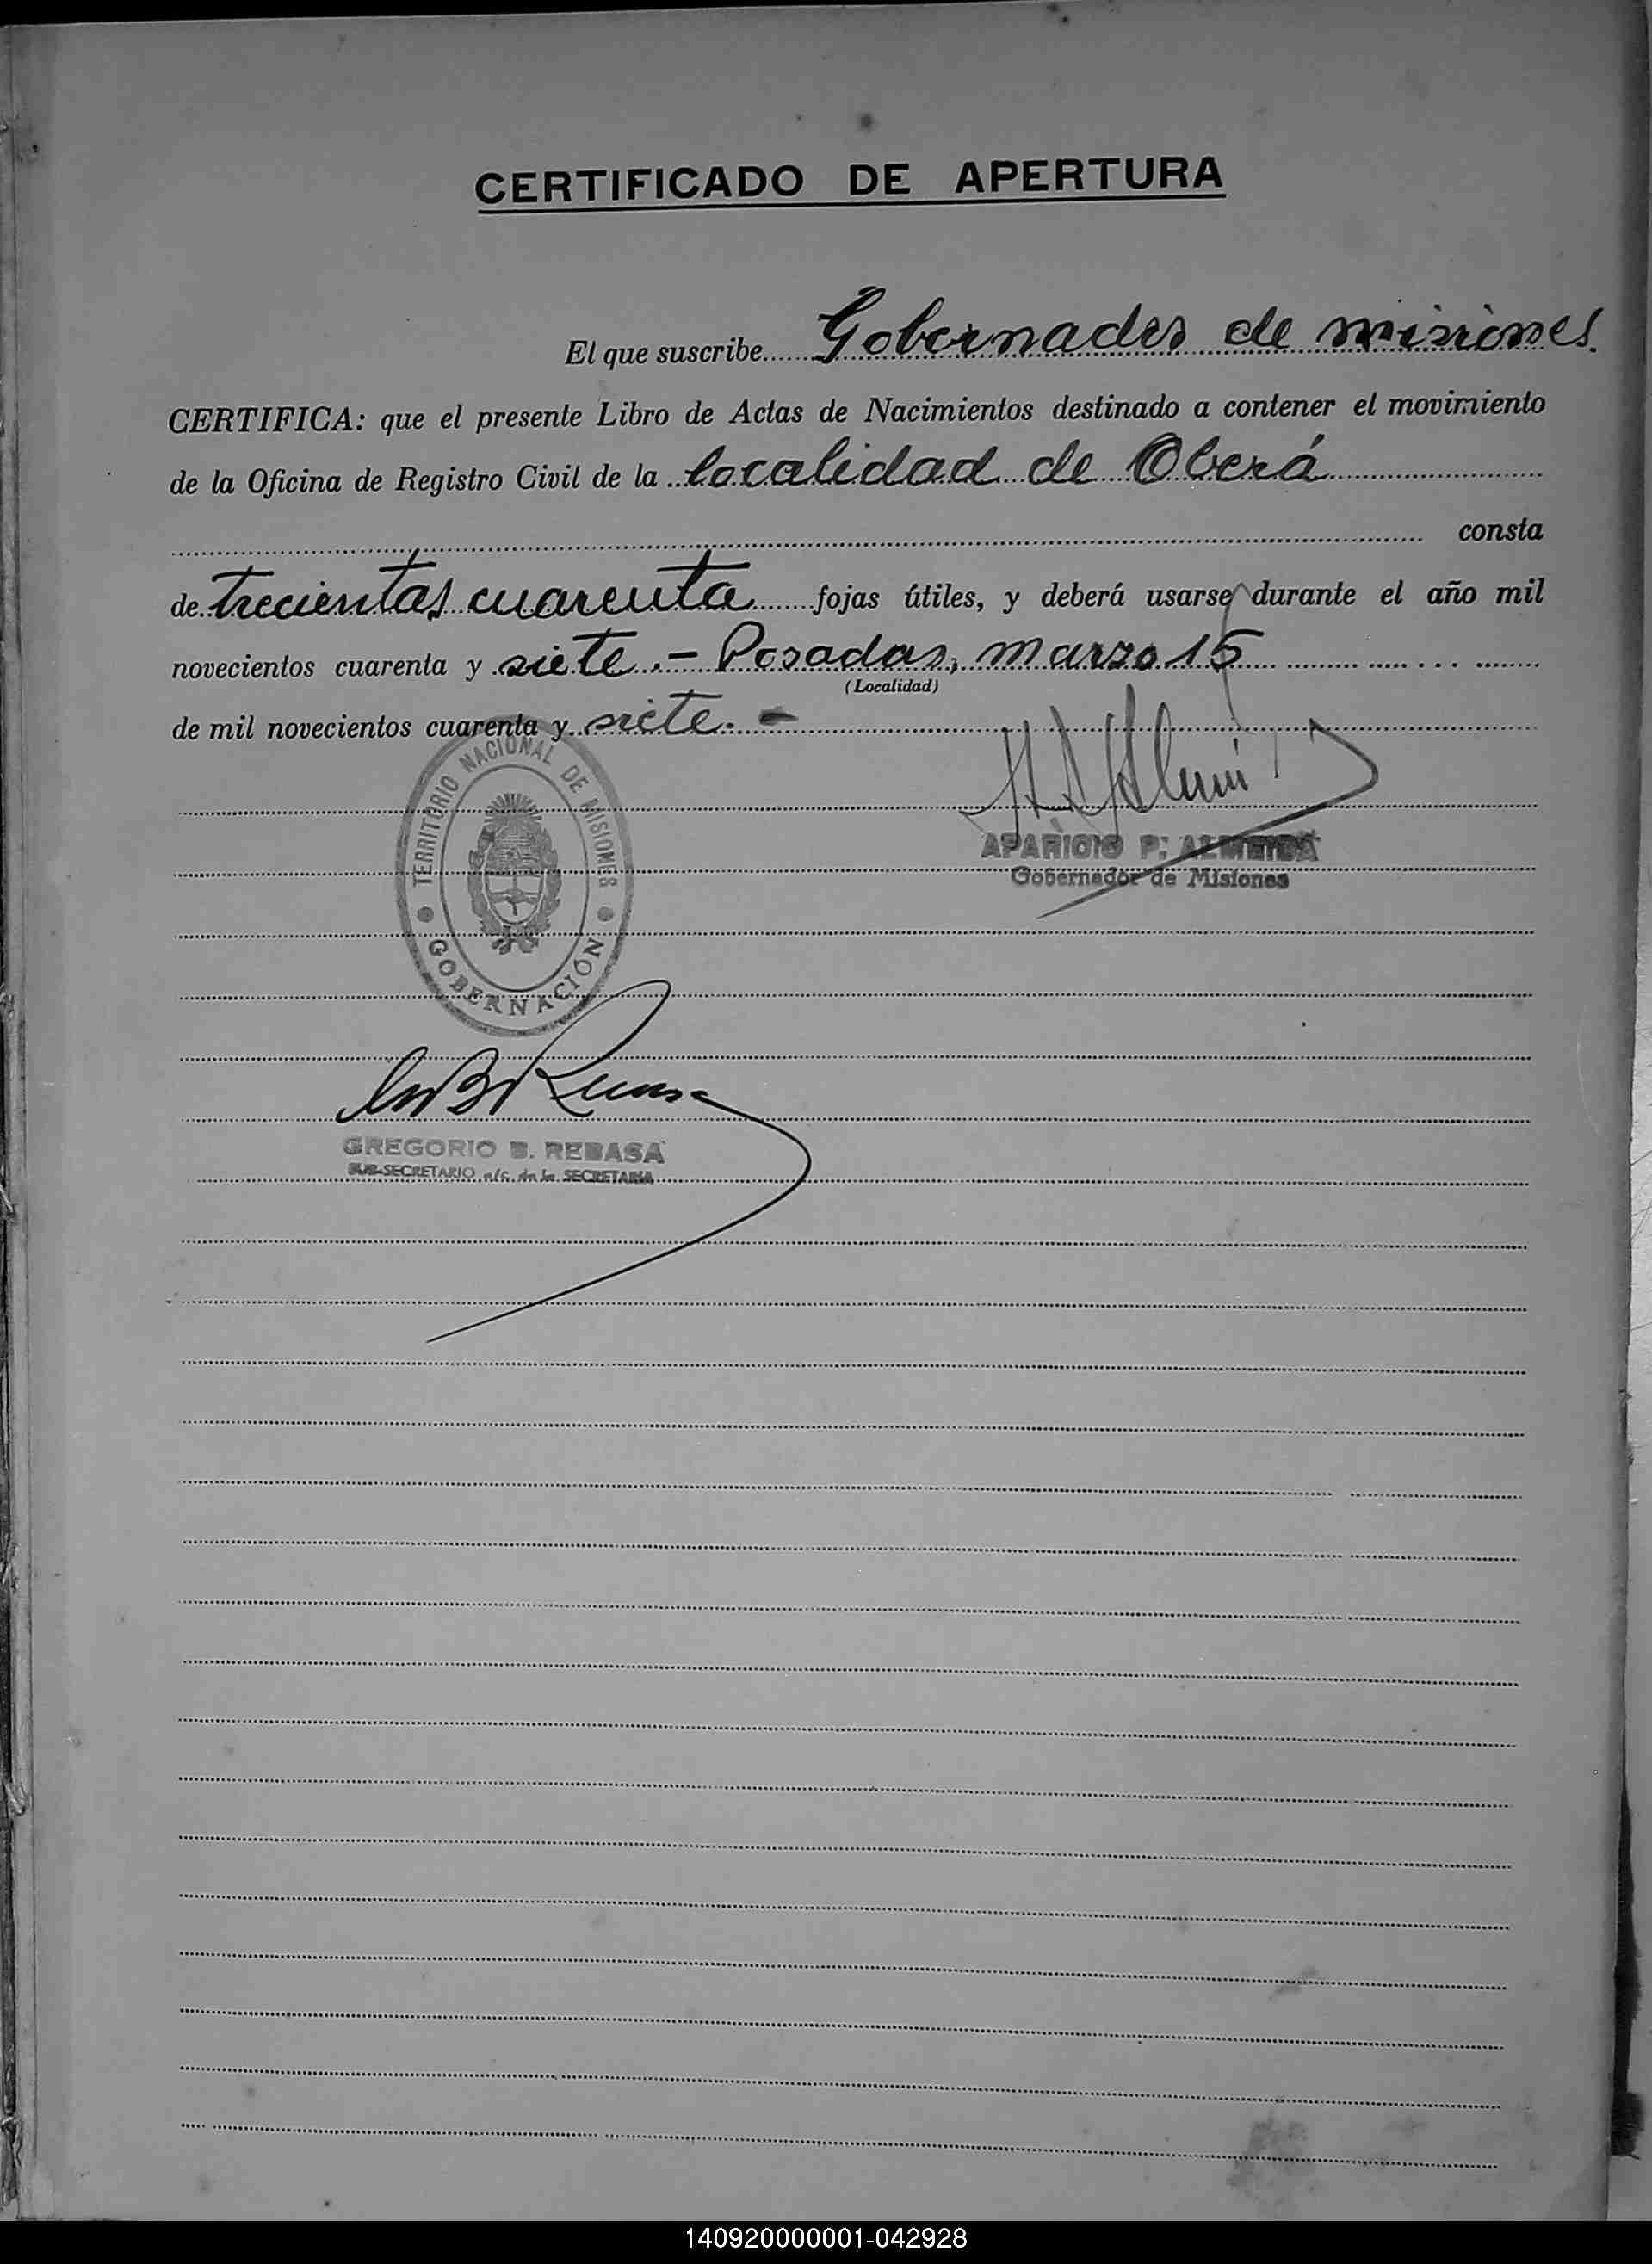 CERTIFICADO DE APERTURA
El que suscribe Gobernador de misiones.
CERTIFICA: que el presente Libro de Actas de Nacimientos destinado a contener el movimiento
de la Oficina de Registro Civil de la localidad de Oberá
consta
de trecientas cuarenta fojas útiles, y deberá usarse durante el año mil
novecientos cuarenta y siete.- Posadas, marzo 15
(Localidad)
de mil novecientos cuarenta y siete.-
TERRITORIO NACIONAL DE MISIONES
GOBERNACIÓN
APARICIO P. ALMEIDA
Gobernador de Misiones
GREGORIO B. REBASA
SUB-SECRETARIO a/c. de la SECRETARIA
140920000001-042928